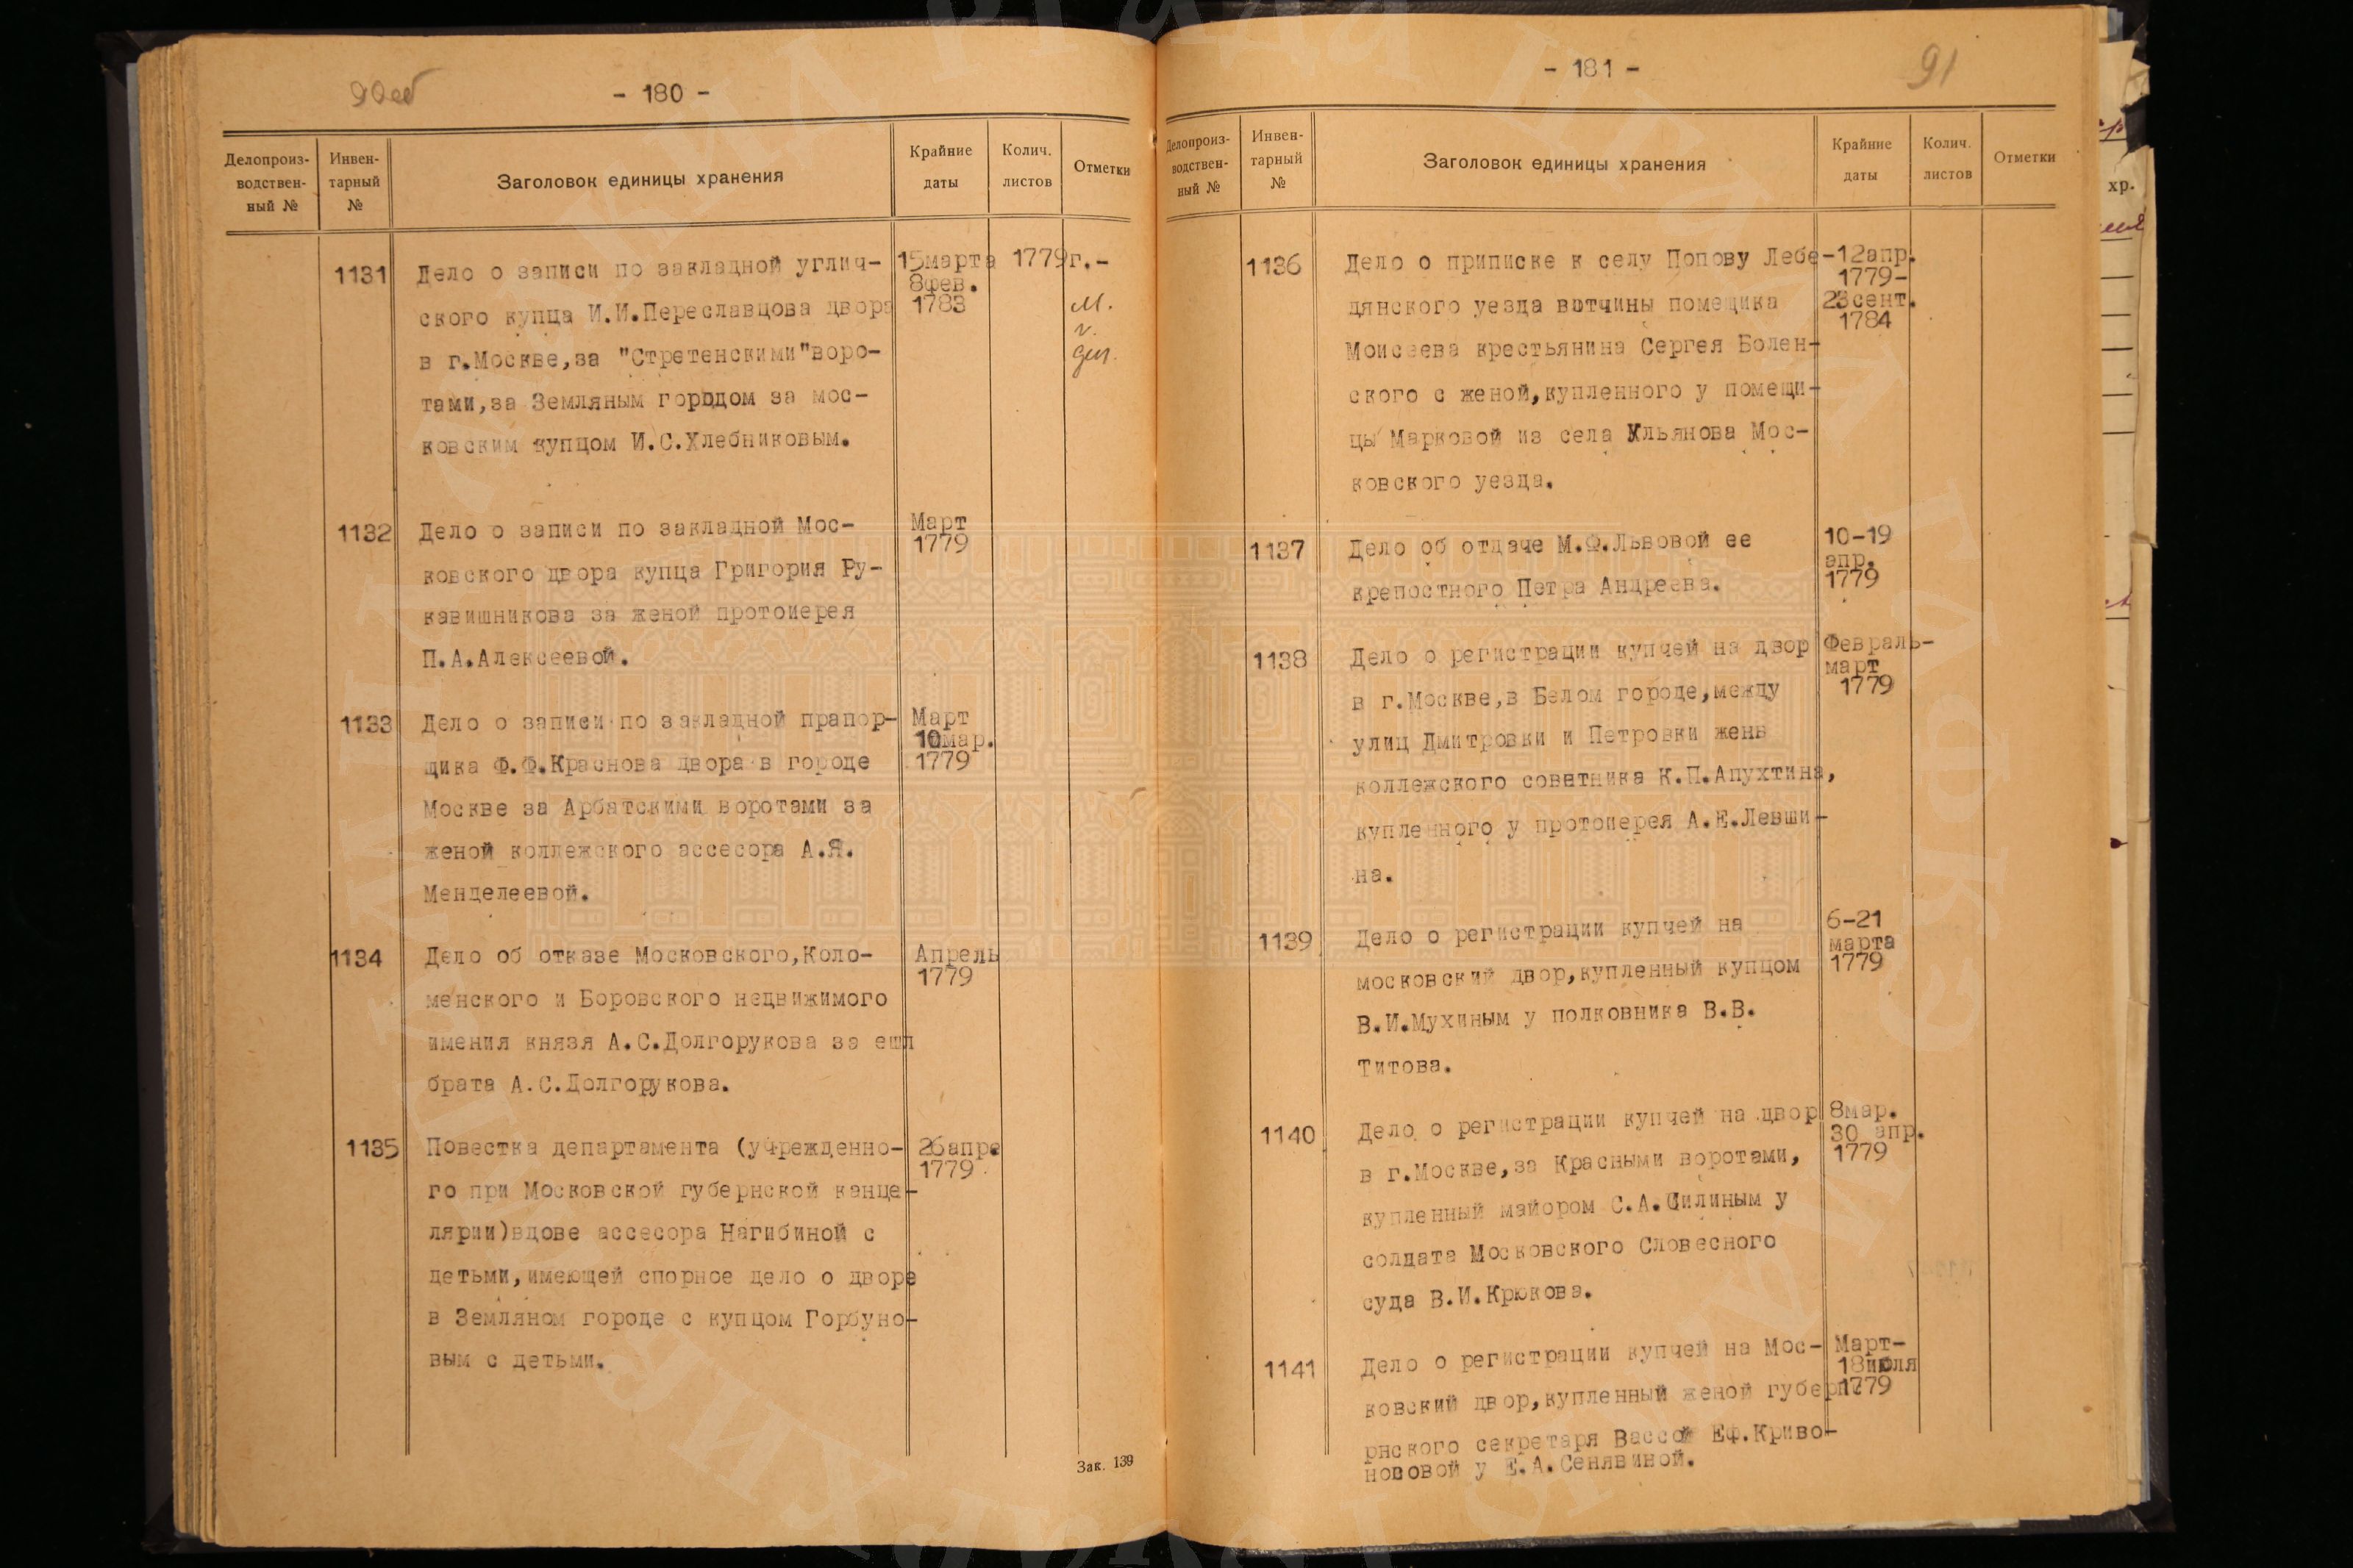 90об
- 180 -
Делопроиз-
водствен-
ный №
Инвен-
тарный
№
Заголовок единицы хранения
Крайние
даты
Колич.
листов
Отметки
1131
Дело о записи по закладной углич-
ского купца И.И.Переславцова двора
в г.Москве,за "Стретенскими"воро-
тами,за Земляным городом за мос-
ковским купцом И.С.Хлебниковым.
15марта 1779г.-
8фев.
1783
1132
Дело о записи по закладной Мос-
ковского двора купца Григория Ру-
кавишникова за женой протоиерея
П.А.Алексеевой.
Март
1779
1133
Дело о записи по закладной прапор-
щика Ф.Ф.Краснова двора в городе
Москве за Арбатскими воротами за
женой коллежского ассесора А.Я.
Менделеевой.
Март
10мар.
1779
1134
Дело об отказе Московского,Коло-
менского и Боровского недвижимого
имения князя А.С.Долгорукова за
брата А.С.Долгорукова.
Апрель
1779
1135
Повестка департамента (учрежденно-
го при Московской губернской канце-
лярии)вдове ассесора Нагибиной с
детьми,имеющей спорное дело о дворе
в Земляном городе с купцом Горбуно-
вым с детьми.
26апре
1779
Зак. 139
- 181 -
91
Делопроиз-
водствен-
ный №
Инвен-
тарный
№
Заголовок единицы хранения
Крайние
даты
Колич.
листов
Отметки
1136
Дело о приписке к селу Попову Лебе-
дянского уезда вотчины помещика
Моисеева крестьянина Сергея Болен-
ского с женой,купленного у помещи-
цы Марковой из села Ульянова Мос-
ковского уезда.
12апр.
1779-
23сент.
1784
1137
Дело об отдаче М.Ф.Львовой ее
крепостного Петра Андреева.
10-19
апр.
1779
1138
Дело о регистрации купчей на двор
в г.Москве,в Белом городе,между
улиц Дмитровки и Петровки жены
коллежского советника К.П.Апухтина,
купленного у протоиерея А.Е.Левши-
на.
Февраль-
март
1779
1139
Дело о регистрации купчей на
московский двор,купленный купцом
В.И.Мухиным у полковника В.В.
Титова.
6-21
марта
1779
1140
Дело о регистрации купчей на двор
в г.Москве,за Красными воротами,
купленный майором С.А.Силиным у
солдата Московского Словесного
суда В.И.Крюкова.
8мар.
30 апр.
1779
1141
Дело о регистрации купчей на Мос-
ковский двор,купленный женой
рнского секретаря Вассой Еф.Криво-
носовой у Е.А.Сенявиной.
Март-
18июля
1779
хр.